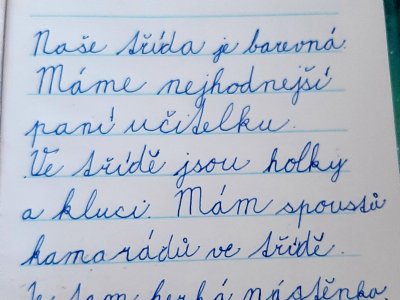 Naše třída je barevná.
Máme nejhodnejší
paní učitelku.
Ve třídě jsou holky
a kluci. Mám spoustů
kamarádů ve třídě.
Je tam hezká nástěnka.